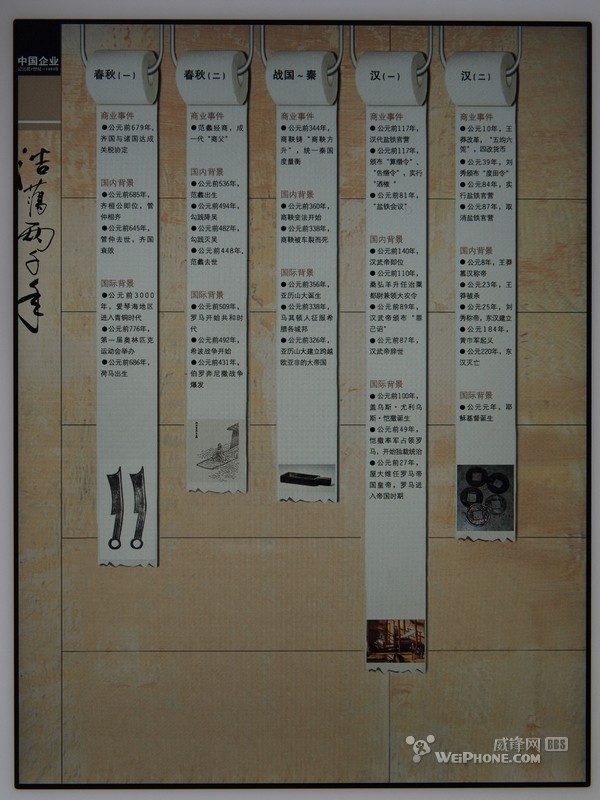 中国企业
浩荡两千年
春秋(一)
商业事件
●公元前679年，
齐国与诸国达成
关税协定
国内背景
●公元前685年，
齐桓公即位，管
仲相齐
●公元前645年，
管仲去世，齐国
衰败
国际背景
●公元前3000
年，爱琴海地区
进入青铜时代
●公元前776年，
第一届奥林匹克
运动会举办
●公元前686年，
荷马出生
春秋(二)
商业事件
●范蠡经商，成
一代“商父”
国内背景
●公元前536年，
范蠡出生
●公元前494年，
勾践降吴
●公元前482年，
勾践灭吴
●公元前448年，
范蠡去世
国际背景
●公元前509年，
罗马开始共和时
代
●公元前492年，
希波战争开始
●公元前431年，
伯罗奔尼撒战争
爆发
战国~秦
商业事件
●公元前344年，
商鞅铸“商鞅方
升”，统一秦国
度量衡
国内背景
●公元前360年，
商鞅变法开始
●公元前338年，
商鞅被车裂而死
国际背景
●公元前356年，
亚历山大诞生
●公元前338年，
马其顿人征服希
腊各城邦
●公元前326年，
亚历山大建立跨越
欧亚非的大帝国
汉(一)
商业事件
●公元前117年，
汉代盐铁官营
●公元前117年，
颁布“算缗令”、
“告缗令”，实行
“酒榷”
●公元前81年，
“盐铁会议”
国内背景
●公元前140年，
汉武帝即位
●公元前110年，
桑弘羊升任治粟
都尉兼领大农令
●公元前89年，
汉武帝颁布“罪
己诏”
●公元前87年，
汉武帝辞世
国际背景
●公元前100年，
盖乌斯·尤利乌
斯·恺撒诞生
●公元前49年，
恺撒率军占领罗
马，开始独裁统治
●公元前27年，
屋大维任罗马帝
国皇帝，罗马进
入帝国时期
汉(二)
商业事件
●公元10年，王
莽改革，“五均六
筦”，四改货币
●公元39年，刘
秀颁布“度田令”
●公元84年，实
行盐铁官营
●公元87年，取
消盐铁官营
国内背景
●公元8年，王莽
篡汉称帝
●公元23年，王
莽被杀
●公元25年，刘
秀称帝，东汉建立
●公元184年，
黄巾军起义
●公元220年，东
汉灭亡
国际背景
●公元元年，耶
稣基督诞生
威锋网 BBS
WEIPHONE.COM